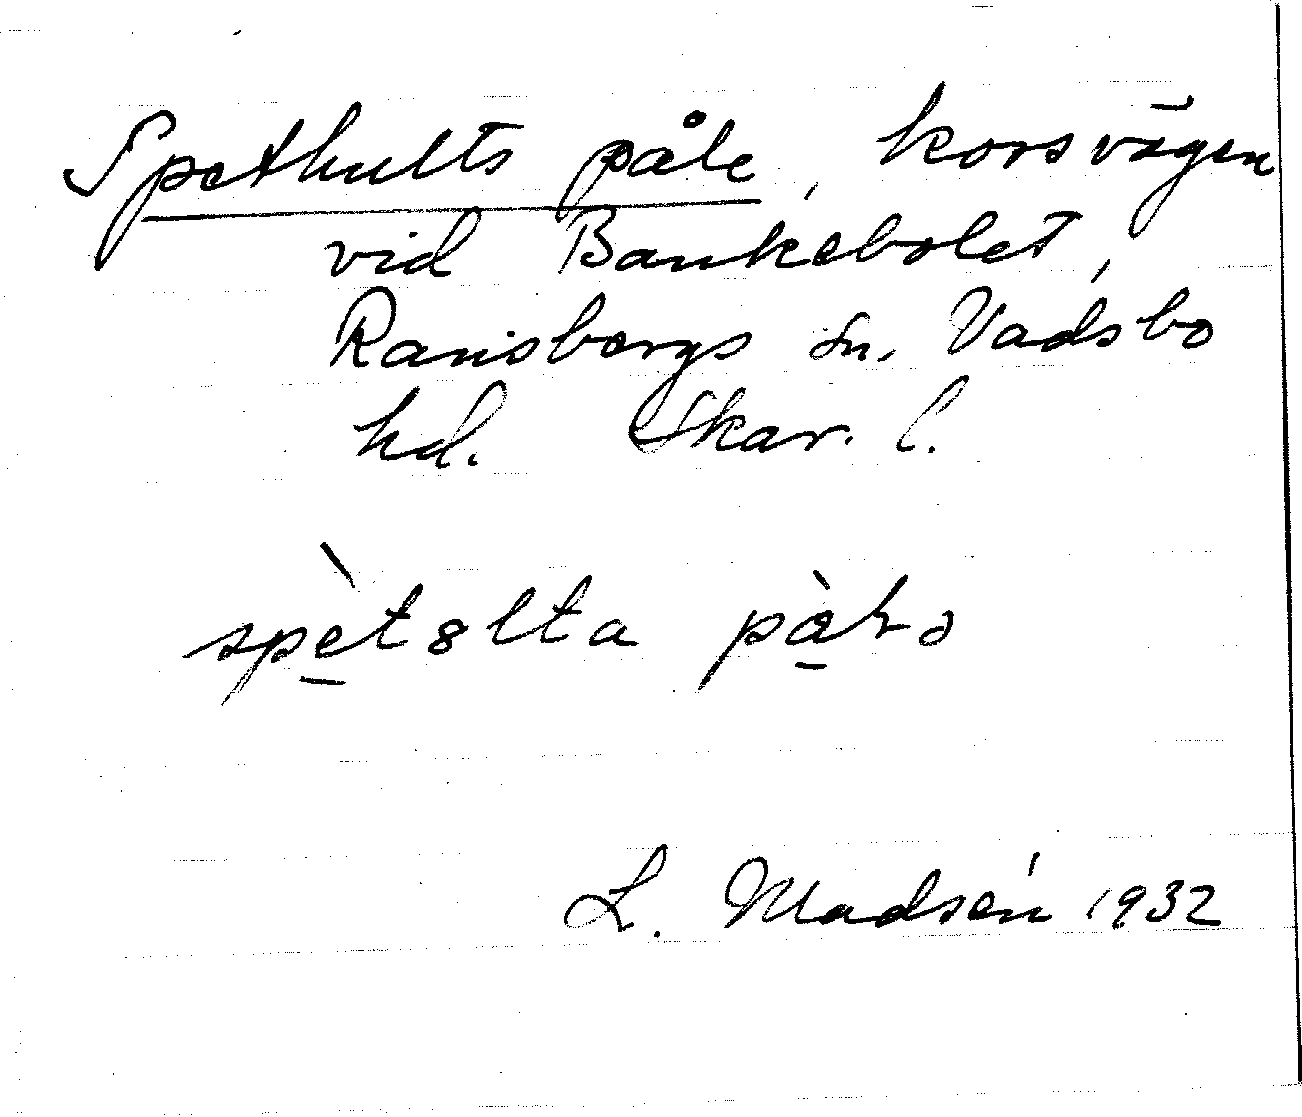 Spethults påle, korsvägen
vid Bankebolet,
Ransbergs sn. Vadsbo
hd. Skar. l.
spèt8lta pàɫə
L. Madsén 1932